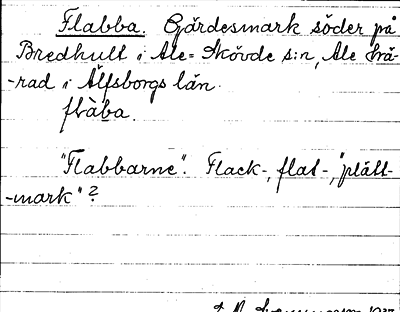 Flabba. Gärdesmark söder på
Bredhult i Ale=Skövde s:n, Ale hä-
-rad i Älfsborgs län.
flàba.
"Flabbarne". Flack-, flat-, "plätt-
-mark"?